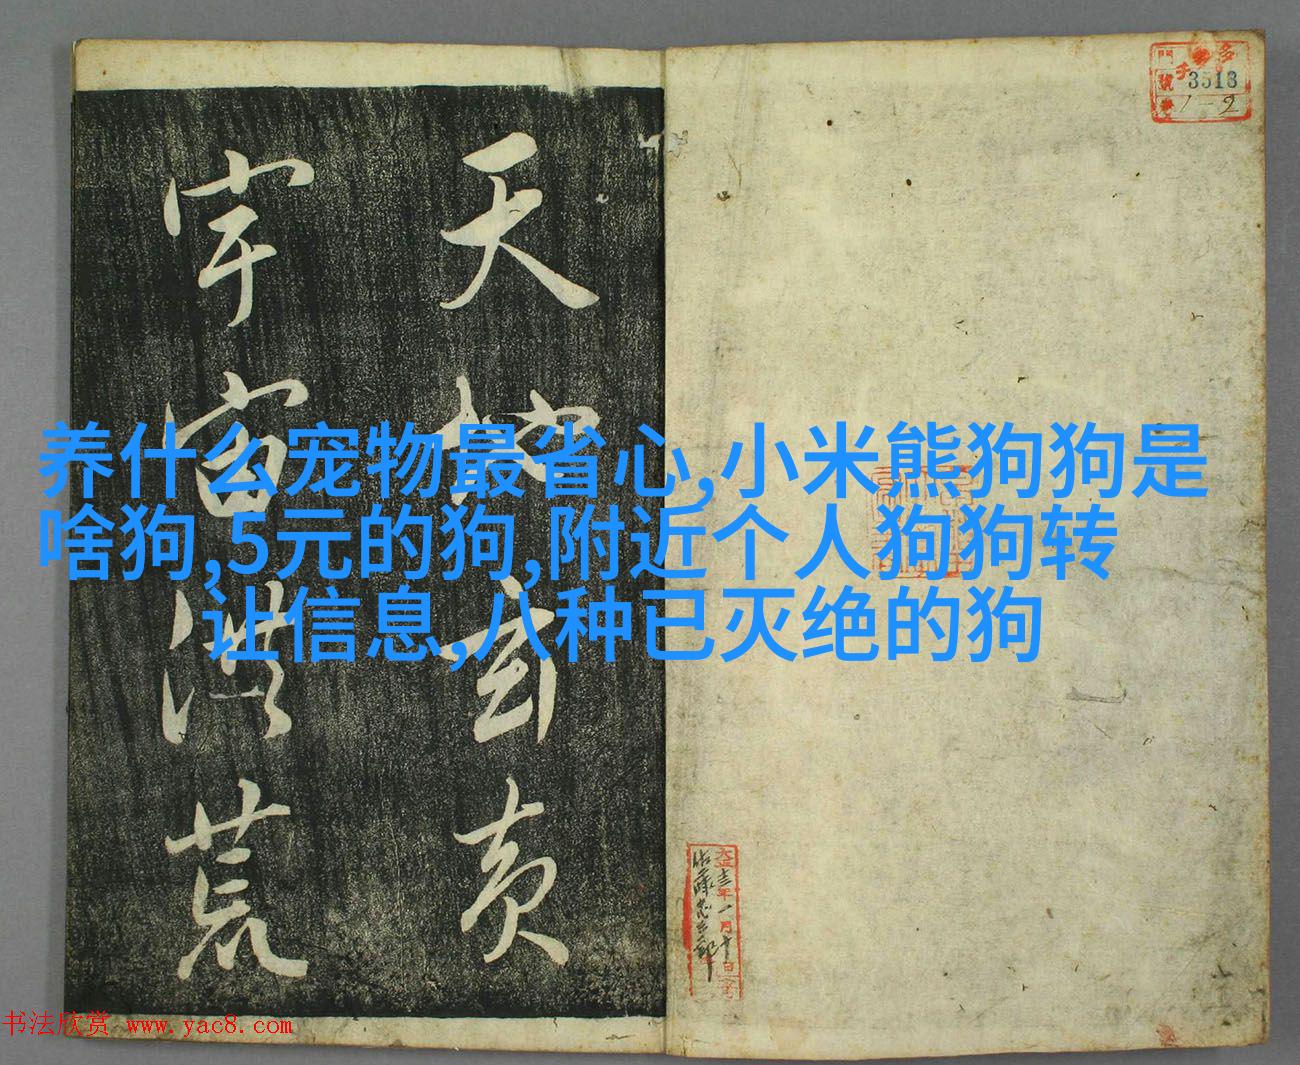 天地玄黄
宇宙洪荒
养什么宠物最省心,小米熊狗狗是
啥狗,5元的狗,附近个人狗狗转
让信息,八种已灭绝的狗
3513
1-2
书法欣赏 www.yac8.com